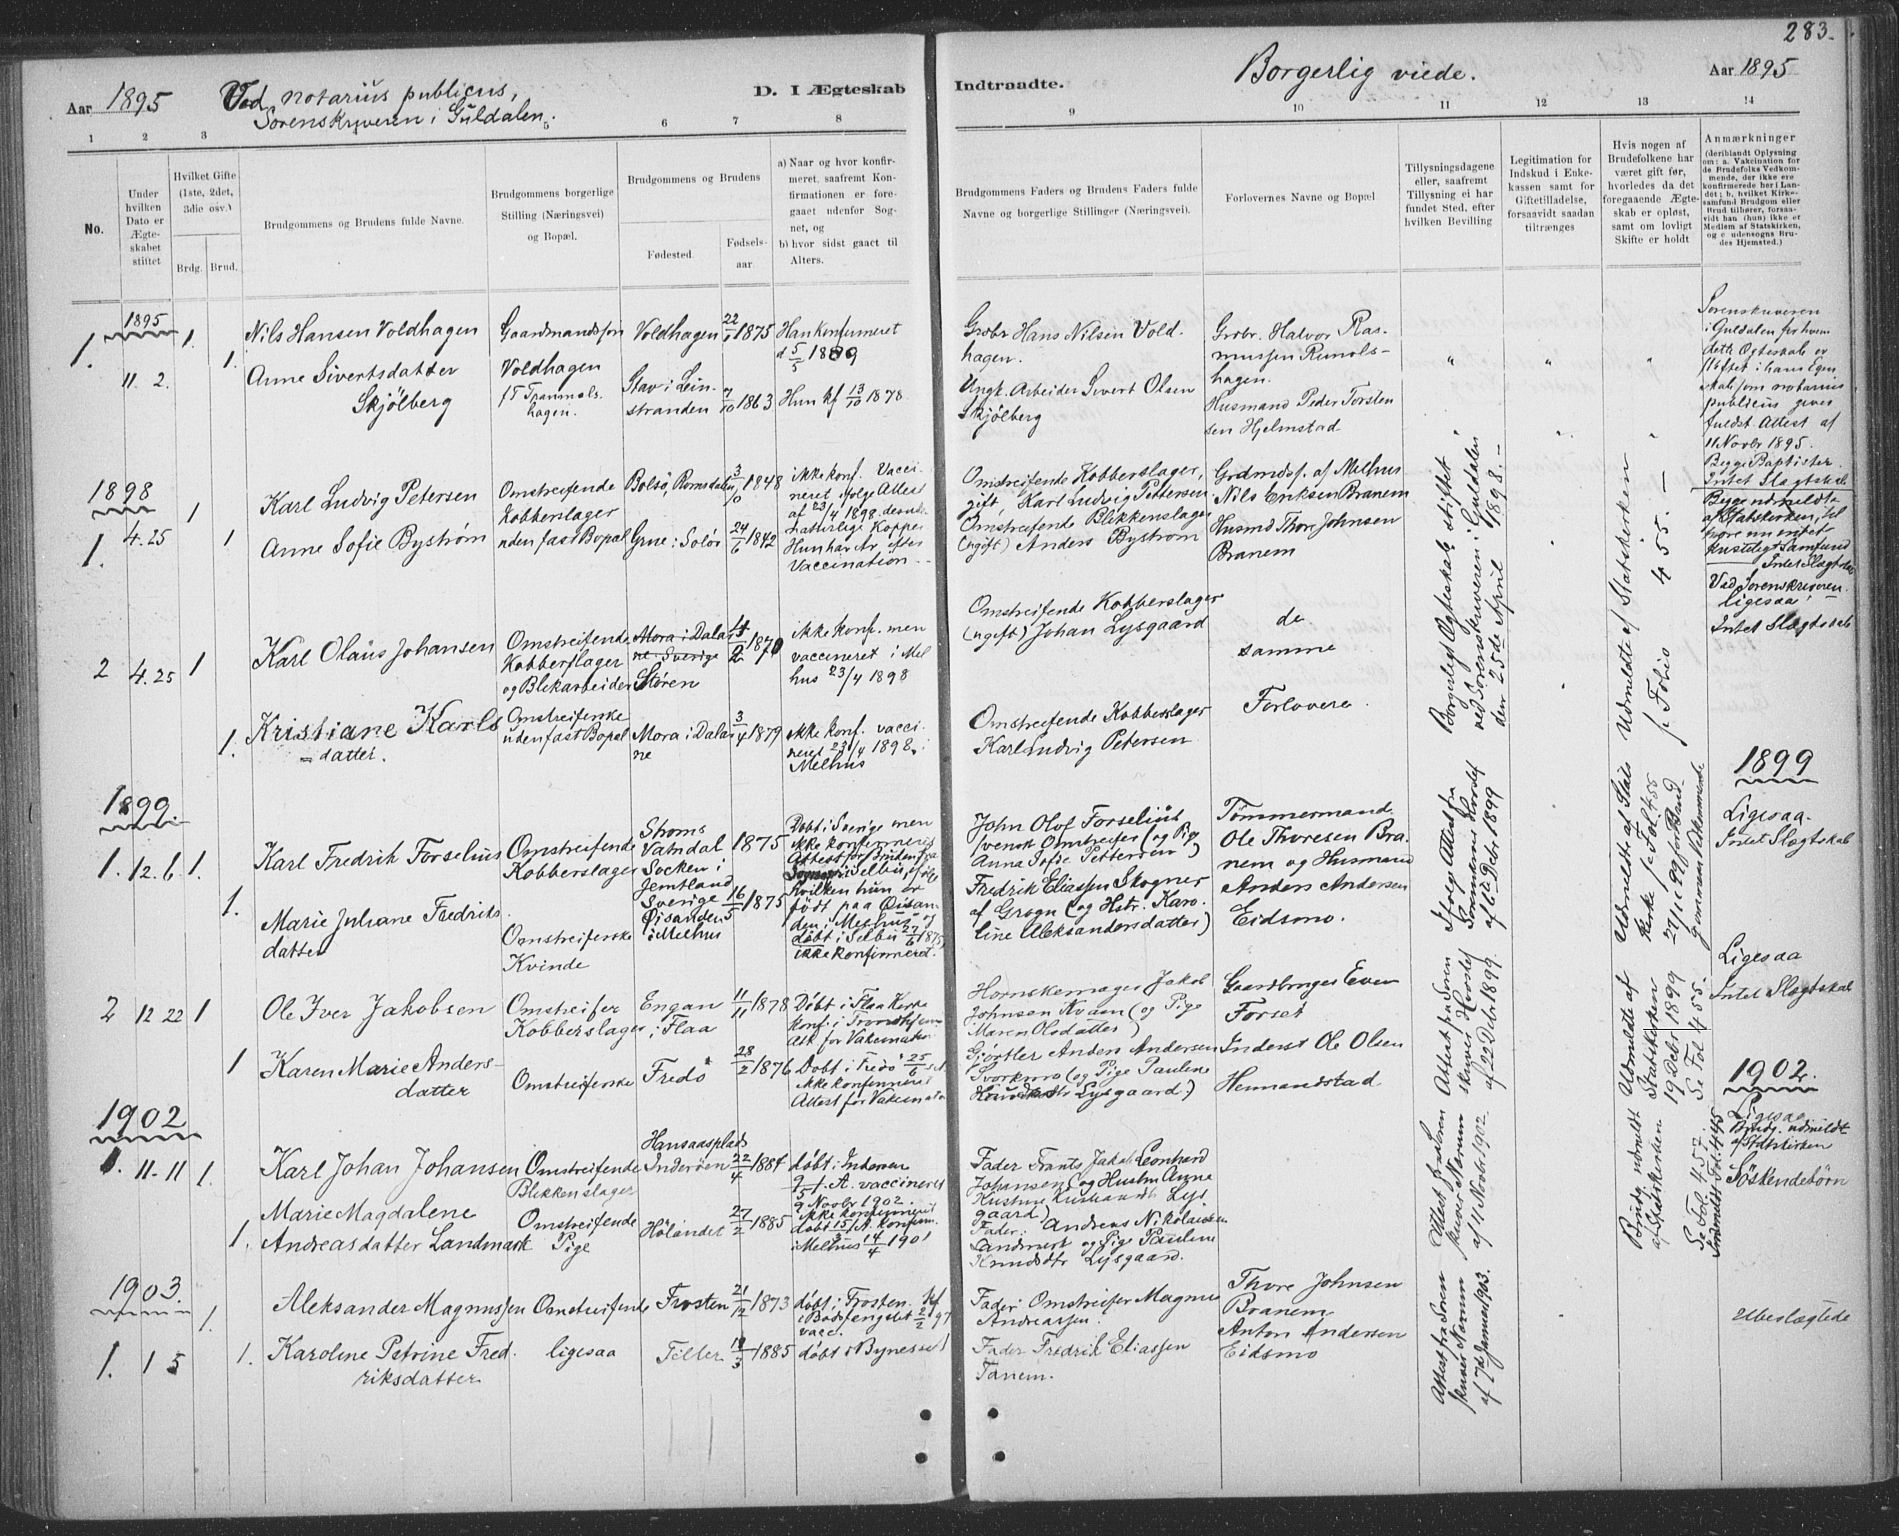 283.
Aar 1895
Ved notarius publicus,
Sorenskriveren i Guldalen.
D. I Ægteskab
Indtraadte.
Borgerlig viede.
Aar 1895
1 2 3 5 6 7 8
9 10 11 12 13 14
No.
Under hvilken Dato er Ægteskabet stiftet
Hvilket Gifte (1ste, 2det, 3die osv.)
Brdg. Brud.
Brudgommens og Brudens fulde Navne.
Brudgommens borgerlige Stilling (Næringsvei) og Bopæl.
Brudgommens og Brudens
Fødested.
Fødselsaar.
a) Naar og hvor konfirmeret, saafremt Konfirmationen er foregaaet udenfor Sognet, og
b) hvor sidst gaaet til Alters.
Brudgommens Faders og Brudens Faders fulde Navne og borgerlige Stillinger (Næringsvei).
Forlovernes Navne og Bopæl
Tillysningsdagene eller, saafremt Tillysning ei har fundet Sted, efter hvilken Bevilling
Legitimation for Indskud i Enkekassen samt for Giftetilladelse, forsaavidt saadan tiltrænges
Hvis nogen af Brudefolkene har været gift før, hvorledes da det foregaaende Ægteskab er opløst, samt om lovligt Skifte er holdt
Anmærkninger
(deriblandt Oplysning om: a. Vakcination for de Brudefolks Vedkommende, der ikke ere konfirmerede her i Landet; b, hvilket Kirkesamfund Brudgom eller Brud tilhører, forsaavidt han (hun) ikke er Medlem af Statskirken, og c udensogns Brudes Hjemsted.)
1895
1. 11. 2. 1.
Nils Hansen Voldhagen
Gaardmandssøn
Voldhagen
Voldhagen
22/1 1875
Han konfirmeret
d 5/5 1889
Grbr Hans Nilsen Voldhagen.
Grbr. Halvor Rasmussen Rimolshagen.
1.
Anne Sivertsdatter
Skjølberg
Stav i Leinstranden
7/10 1863
Hun kf 13/10 1878
Ungk. Arbeider Sivert Olsen
Skjølberg
Husmand Peder Torstensen Hjelmstad
Sorenskriveren
i Guldalen for hvem
dette Ægteskab er
stiftet i hans Egenskab som notarius
publicus giver
fuldst. Attest af
11 Novbr 1895.
Begge Baptister
Intet Slægtskab
1898
1. 4. 25 1
Karl Ludvig Petersen
Omstreifende
Kobberslager
uden fast Bopal
Bolsø, Romsdalen,
3/10 1848
ikke konf. Vaccineret ifølge Attest
af 23/4 1898.
Omstreifende Kobberslager,
gift, Karl Ludvig Pettersen
Grdmdsf. af Melhus
Nils Eriksen Branem
1
Anne Sofie Bystrøm
Grue i Solør
24/6 1842
naturlige Kopper
Hun har Ar efter
Vaccination.
Omstreifende Blikkenslager
(ugift) Anders Bystrøm
Husmd Thore Johnsen
Branem
Borgerligt Ægteskab stiftet
ved Sorenskriveren i Guldalen
den 25de April 1898. —
Udmeldte af Statskirken
se Folio 455. —
Begge udmeldte
af Statskirken,
Intet Slægtskab
Ved Sorenskriveren
ligesaa
Intet Slægtskab
2 4. 25 1
Karl Olaus Johansen
Omstreifende
Kobberslager
og Blekarbeider
Mora i Dalarne Sverige
Støren
1870
ikke konf. men
vaccineret i Melhus 23/4 1898
Omstreifende Kobberslager
(ugift) Johan Lysgaard
de
samme
Forlovere.
1.
Kristiane Karlsdatter.
Omstreiferske
uden fast Bopal
Mora i Dalarne
3/4 1879
ikke konf. vaccineret 23/4 1898 i
Melhus
Omstreifende Kobberslager
Karl Ludvig Petersen
1899
1. 12. 6. 1.
Karl Fredrik Forselius
Omstreifende
Kobberslager
Strøms
Vatndal
Socken i
Jemtland
Sverige
1875
Døbt i Sverige men
ikke konfirmeret
John Olof Forselius
svensk Omstreifer (og Pige
Anna Sofie Pettersen)
Tømmermand
Ole Thoresen Branem og Husmand
Anders Andersen
Eidsmo.
1.
Marie Juliane Fredriksdatter
Omstreiferske
Kvinde
Øisanden
i Melhus
16/5 1875
Attest for Bruden fra
Sognepr i Selbu, ifølge
hvilken hun er
født paa Øisanden i Melhus og
døbt i Selbu 27/6 1875
ikke konfirmeret.
Fredrik Eliassen Skogner
af Grogn (og Hstr. Karoline Aleksandersdatter)
Ifølge Attest fra
Sorenskriver Hordst
af 6te Debr. 1899
Udmeldte af Statskirke se Fol. 455
1899
Ligesaa.
Intet Slægtskab
2 12 22 1
Ole Iver Jakobsen
Omstreifer
Kobberslager
Engan
i Flaa
11/11 1878
Døbt i Flaa Kirke
konf. i Trondhjem
Att. for Vakcination
Hornskemager Jakob
Johnsen Kvaan (og Pige
Maren Olsdatter)
Gaardbruger Even
Forset
1
Karen Marie Andersdatter
Omstreiferske
Fredø
28/2 1876
Døbt i Fredø 25/6
ikke konfirmeret
Attest for Vakcination
Gjørtler Anders Andersen
Svorkmo (og Pige Pauline
Knudsdtr Lysgaard.)
Inderst Ole Olsen
Hermandstad
Attest fra Sorenskriver Hordst
af 22 Debr. 1899
Udmeldte af
Statskirken
19 Debr 1899
Se Fol 455.
Ligesaa
Intet Slægtskab
1902
1. 11. 11 1.
Karl Johan Johansen
Omstreifende
Blikkenslager
Hansaasplads
Inderøen
22/4 1884
døbt i Inderøen
vaccineret
9 Novbr 1902.
Ikke konfirmeret
Fader Frants Jakob Leonhard
Johansen (og Hustru Anne
Lysgaard)
1.
Marie Magdalene
Andreasdatter Landmark
Omstreifende
Pige
Hølandet
27/2 1885
døbt 15/3 A. konfirm.
i Melhus 14/4 1901
Fader: Andreas Nikolaisen
Landmark og Pige Pauline
Knudsdtr Lysgaard.
Attest fra Sorenskriver Narum
af 11 Novbr. 1902
Brudg. udmeldt
af Statskirken
Se Fol. 457.
Indmeldt Fol. 445
1902.
Ligesaa
Brudg. udmeldt
af Statskirken
Søskendebørn
1903.
1. 1 5 1.
Aleksander Magnussen
Omstreifende
Frosten
21/12 1873
døbt i Frosten. kf
i Bodsfengslet 2/2 97
vacc.
Fader: Omstreifer Magnus
Andreassen.
Thore Johnsen
Branem
1.
Karoline Petrine Fredriksdatter
ligesaa
Tiller
18/3 1885
døbt i Bynesset
Fader Fredrik Eliassen
Tanem.
Anton Andersen
Eidsmo
Attest fra Sorenskriver Narum
af 7de Januar 1903.
Ubeslægtede